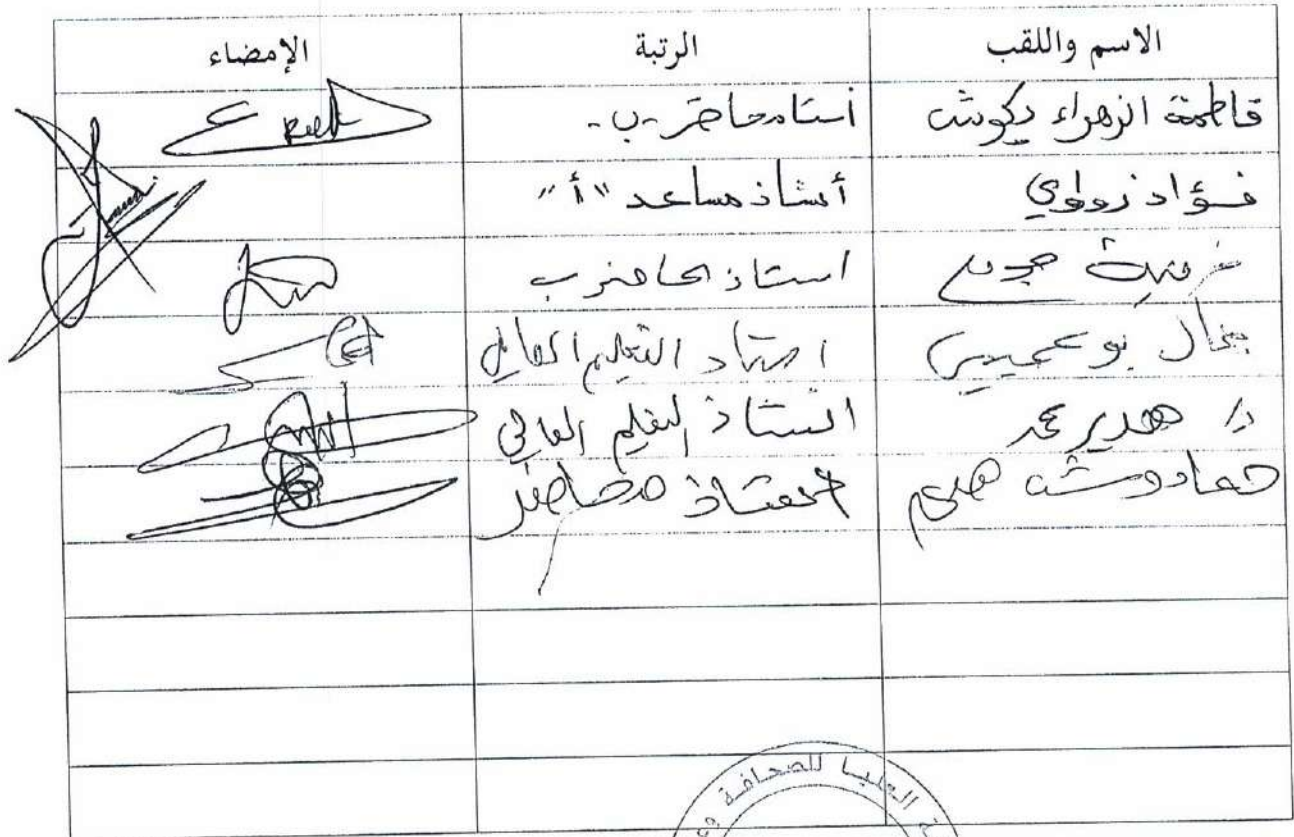 الاسم واللقب الرتبة الإمضاء
فاطمة الزهراء دكوش أستاذ محاضر -ب-
فؤاد زواوي أستاذ مساعد "أ"
استاذ محاضر ب
جمال بوعجيمي استاذ التعليم العالي
د. هدير محمد استاذ التعليم العالي
حمادوش أستاذ محاضر
العليا للصحافة